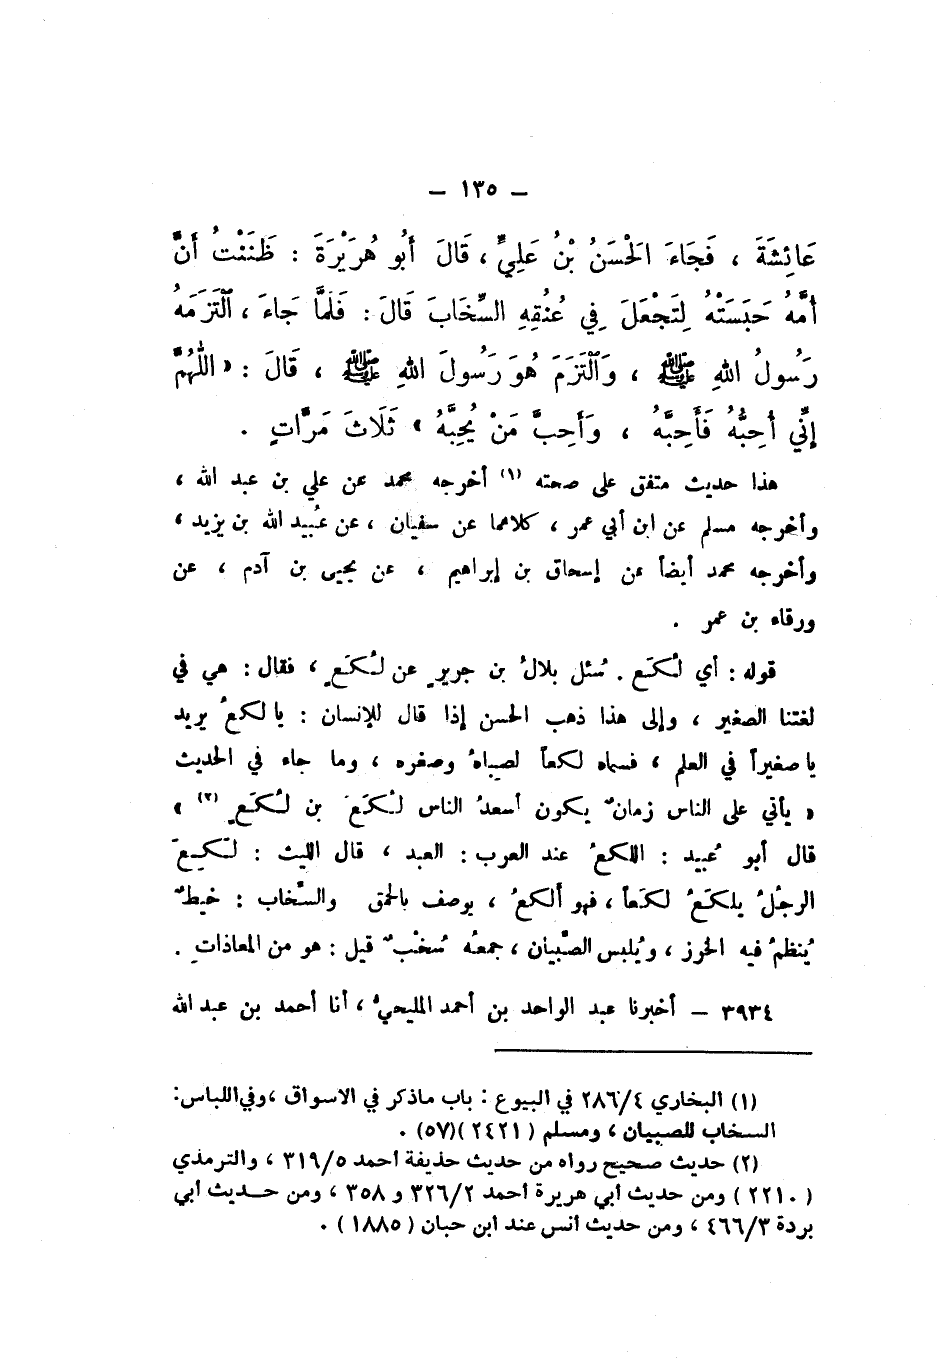 – ١٣٥ –
عَائِشَةَ ، فَجَاءَ الْحَسَنُ بْنُ عَلِيٍّ ، قَالَ أَبُو هُرَيْرَةَ : ظَنَنْتُ أَنَّ
أُمَّهُ حَبَسَتْهُ لِتَجْعَلَ فِي عُنُقِهِ السِّخَابَ قَالَ : فَلَمَّا جَاءَ ، ٱلْتَزَمَهُ
رَسُولُ اللهِ ﷺ ، وَٱلْتَزَمَ هُوَ رَسُولَ اللهِ ﷺ ، قَالَ : « اللَّهُمَّ
إِنِّي أُحِبُّهُ فَأَحِبَّهُ ، وَأَحِبَّ مَنْ يُحِبَّهُ » ثَلَاثَ مَرَّاتٍ .
هذا حديث متفق على صحته (١) أخرجه محمد عن علي بن عبد الله ،
وأخرجه مسلم عن ابن أبي عمر ، كلاهما عن سفيان ، عن عُبيد الله بن يزيد ،
وأخرجه محمد أيضاً عن إسحاق بن إبراهيم ، عن يحيى بن آدم ، عن
ورقاء بن عمر .
قوله : أي لُكَع . سُئل بلالُ بن جريرٍ عن لُكَعٍ ، فقال : هي في
لغتنا الصغير ، وإلى هذا ذهب الحسن إذا قال للإنسان : يا لكعُ يريد
يا صغيراً في العلم ، فسماه لكعاً لصِباهُ وصغره ، وما جاء في الحديث
« يأتي على الناس زمانٌ يكون أسعدُ الناس لُكَعَ بن لُكَعٍ (٢) »
قال أبو عُبيد : اللكعُ عند العرب : العبد ، قال الليث : لَكِعَ
الرجُلُ يلكَعُ لكَعاً ، فهو ألكعُ ، يوصف بالحمق والسِّخاب : خيطٌ
يُنظمُ فيه الخرز ، ويُلبس الصِّبيان ، جمعُه سُخُبٌ قيل : هو من المعاذات .
٣٩٣٤ – أخبرنا عبد الواحد بن أحمد المليحيُّ ، أنا أحمد بن عبد الله
(١) البخاري ٢٨٦/٤ في البيوع : باب ماذكر في الاسواق ، وفي اللباس:
السخاب للصبيان ، ومسلم ( ٢٤٢١ )(٥٧) .
(٢) حديث صحيح رواه من حديث حذيفة أحمد ٣١٩/٥ ، والترمذي
( ٢٢١٠ ) ومن حديث أبي هريرة أحمد ٣٢٦/٢ و ٣٥٨ ، ومن حـديث أبي
بردة ٤٦٦/٣ ، ومن حديث أنس عند ابن حبان ( ١٨٨٥ ) .